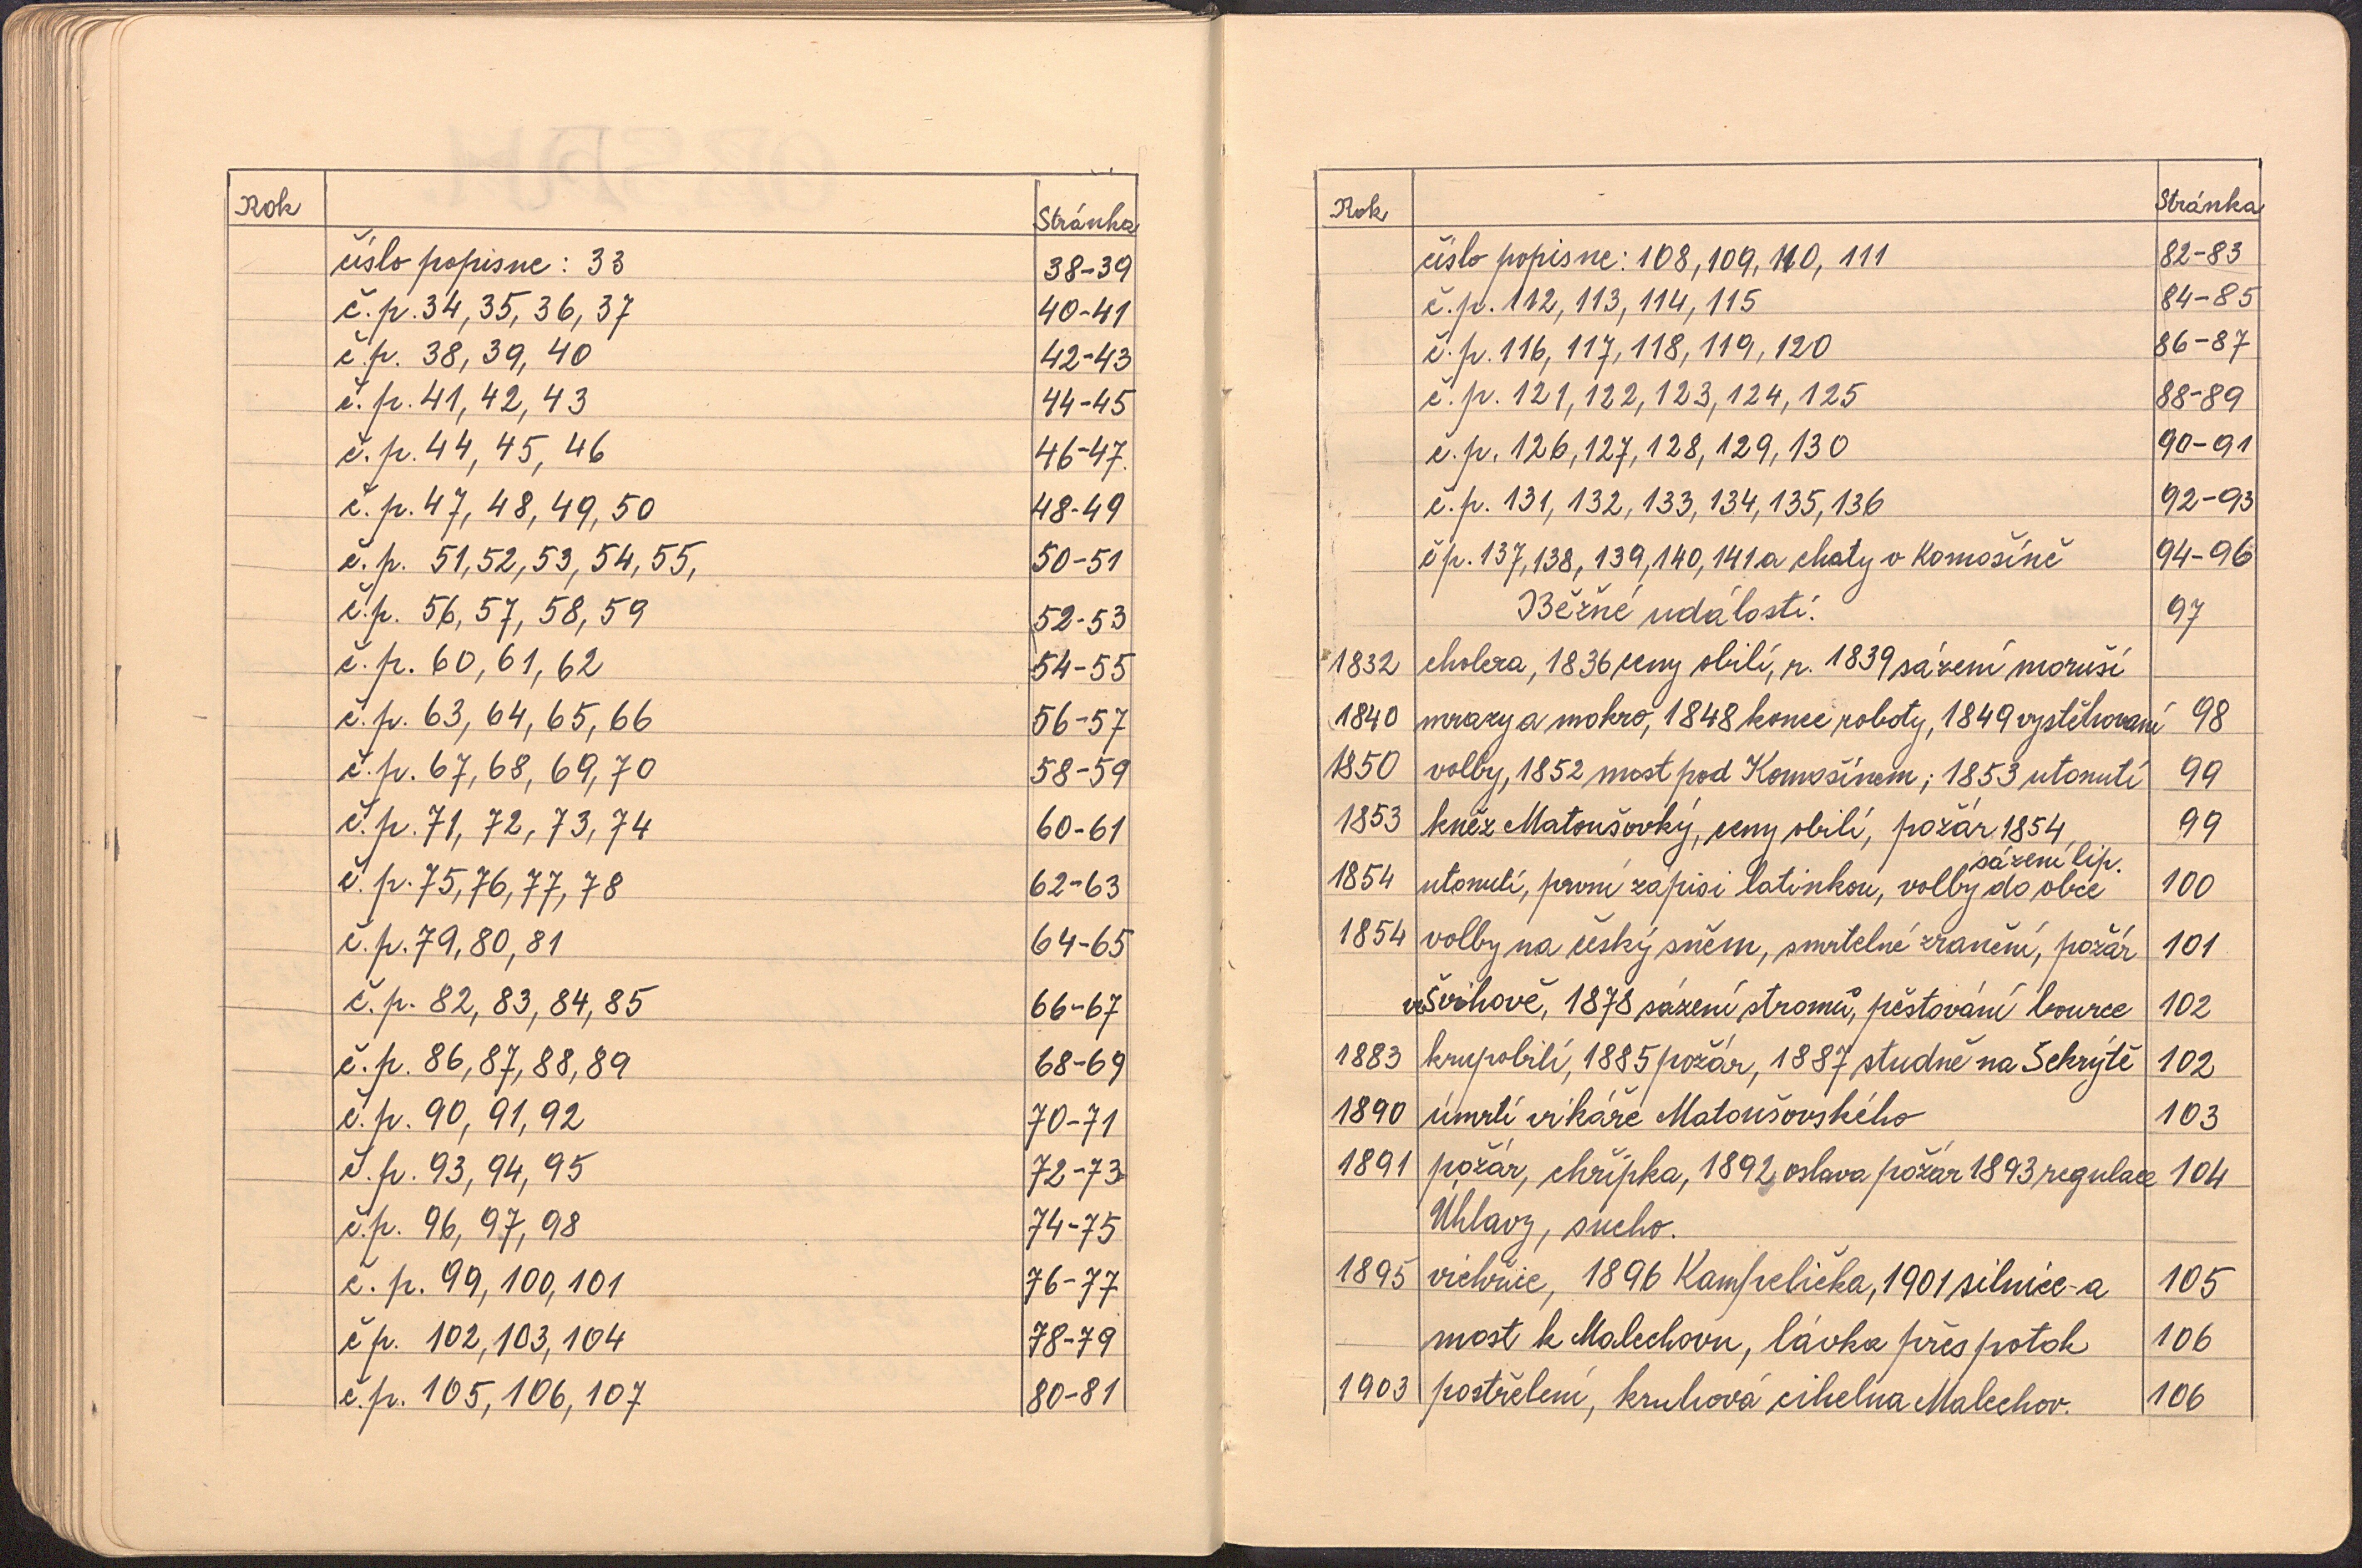 Rok Stránka
číslo popisne: 33 38-39
č.p. 34, 35, 36, 37 40-41
č.p. 38, 39, 40 42-43
č.p. 41, 42, 43 44-45
č.p. 44, 45, 46 46-47
č.p. 47, 48, 49, 50 48-49
č.p. 51, 52, 53, 54, 55, 50-51
č.p. 56, 57, 58, 59 52-53
č.p. 60, 61, 62 54-55
č.p. 63, 64, 65, 66 56-57
č.p. 67, 68, 69, 70 58-59
č.p. 71, 72, 73, 74 60-61
č.p. 75, 76, 77, 78 62-63
č.p. 79, 80, 81 64-65
č.p. 82, 83, 84, 85 66-67
č.p. 86, 87, 88, 89 68-69
č.p. 90, 91, 92 70-71
č.p. 93, 94, 95 72-73
č.p. 96, 97, 98 74-75
č.p. 99, 100, 101 76-77
č p. 102, 103, 104 78-79
č.p. 105, 106, 107 80-81
Rok Stránka
číslo popisne: 108, 109, 110, 111 82-83
č.p. 112, 113, 114, 115 84-85
č.p. 116, 117, 118, 119, 120 86-87
č.p. 121, 122, 123, 124, 125 88-89
č.p. 126, 127, 128, 129, 130 90-91
č.p. 131, 132, 133, 134, 135, 136 92-93
č p. 137, 138, 139, 140, 141 a chaty v Komošíně 94-96
Běžné události. 97
1832 cholera, 1836 ceny obilí, r. 1839 sázení moruší
1840 mrazy a mokro, 1848 konec roboty, 1849 vystěhovaní 98
1850 volby, 1852 most pod Komošínem; 1853 utonutí 99
1853 kněz Matoušovký, ceny obilí, požár 1854 99
sázení lip.
1854 utonutí, první zápisi latinkou, volby do obce 100
1854 volby na český sněm, smrtelné zranění, požár 101
ve Švihově, 1878 sázení stromů, pěstování bource 102
1883 krupobilí, 1885 požár, 1887 studně na Sekrýtě 102
1890 úmrtí vikáře Matoušovského 103
1891 požár, chřipka, 1892 oslava požár 1893 regulace 104
Úhlavy, sucho.
1895 vichřice, 1896 Kampelička, 1901 silnice-a 105
most k Malechovu, lávka přes potok 106
1903 postřelení, kruhová cihelna Malechov. 106